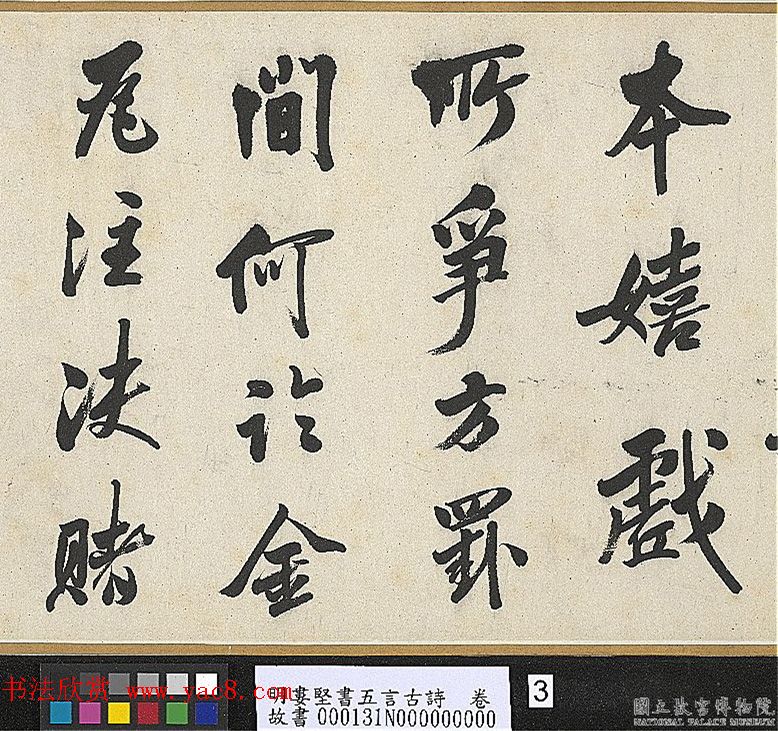 本嬉戲
所爭方罫
間何論金
瓦注決賭
明婁堅書五言古詩 卷
故書 000131N000000000
3
國立故宮博物院
NATIONAL PALACE MUSEUM
书法欣赏 www.yac8.com